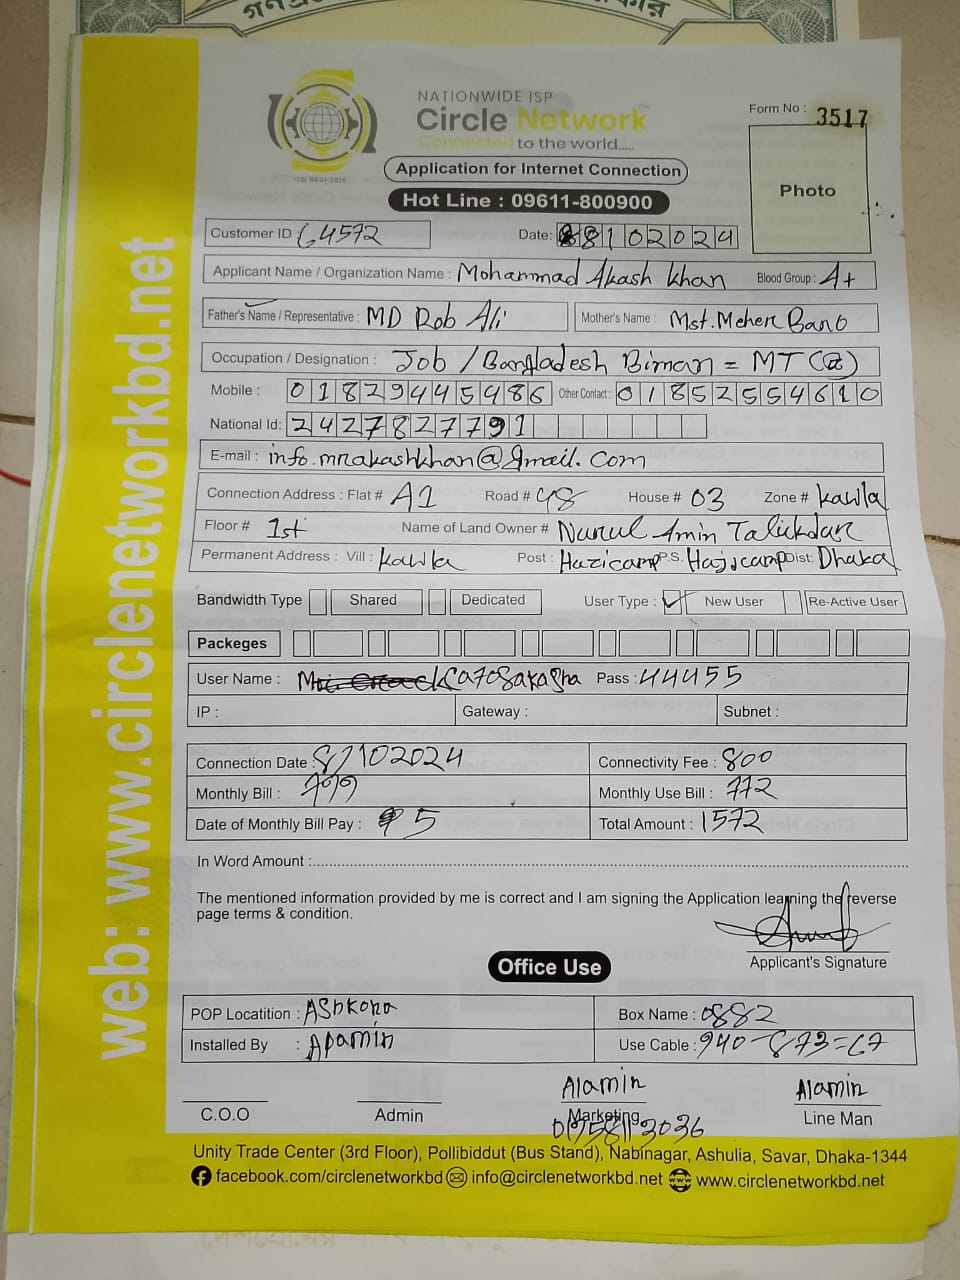 NATIONWIDE ISP
Circle Network™
Connected to the world.....
ISO 9001:2015
Form No : 3517
Application for Internet Connection
Photo
Hot Line : 09611-800900
Customer ID 64572
Date: 8102024
Applicant Name / Organization Name : Mohammad Akash Khan Blood Group : A+
Father's Name / Representative : MD Rob Ali Mother's Name : Mst. Meher Bano
Occupation / Designation : Job / Bangladesh Biman = MT
Mobile : 01829445486 Other Contact : 01852554610
National Id: 2427827791
E-mail : info.mrakashkhan@gmail.com
Connection Address : Flat # A1 Road # 48 House # 03 Zone # kawla
Floor # 1st Name of Land Owner # Nurul Amin Talukdar
Permanent Address : Vill : kawla Post : Hazicamp P.S. Hajicamp Dist: Dhaka
Bandwidth Type Shared Dedicated User Type : ✓ New User Re-Active User
Packeges
User Name : Pass : 44455
IP : Gateway : Subnet :
Connection Date : 8102024 Connectivity Fee : 800
Monthly Bill : Monthly Use Bill : 772
Date of Monthly Bill Pay : 5 Total Amount : 1572
In Word Amount :
The mentioned information provided by me is correct and I am signing the Application learning the reverse
page terms & condition.
Applicant's Signature
Office Use
POP Locatition : Ashkona Box Name : 0882
Installed By : Use Cable : 940-873=67
Alamin Alamin
C.O.O Admin Marketing Line Man
Unity Trade Center (3rd Floor), Pollibiddut (Bus Stand), Nabinagar, Ashulia, Savar, Dhaka-1344
facebook.com/circlenetworkbd info@circlenetworkbd.net www.circlenetworkbd.net
web: www.circlenetworkbd.net